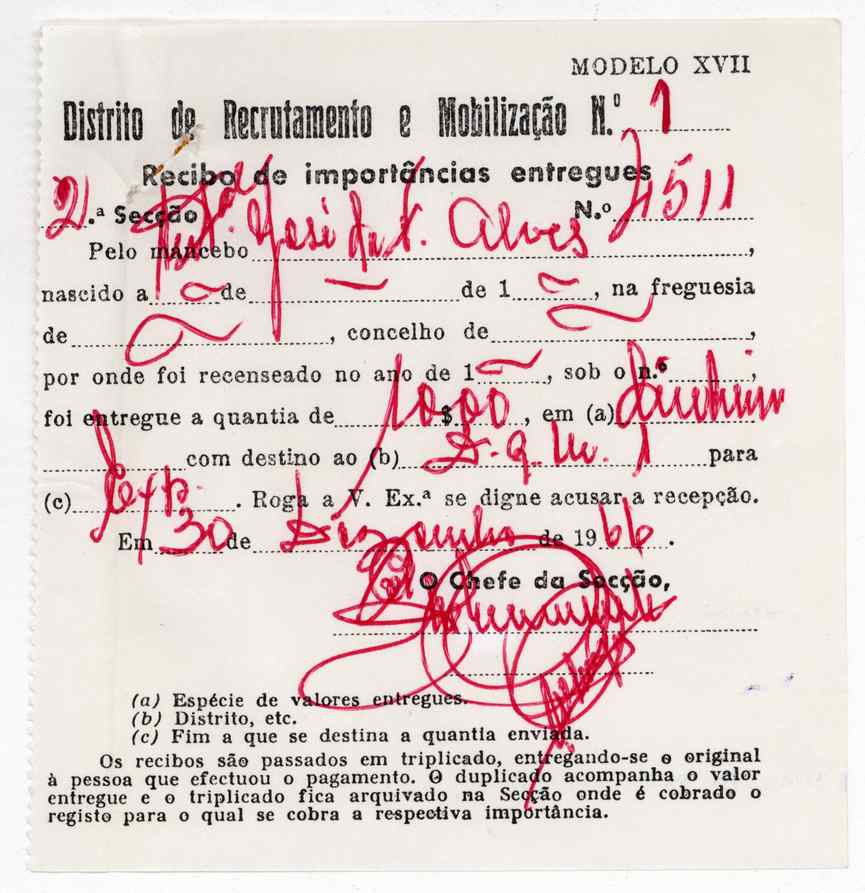 MODELO XVII
Distrito de Recrutamento e Mobilização N.º 1
Recibo de importâncias entregues
2.ª Secção N.º 4511
Pelo mancebo José Alves,
nascido a de de 1 , na freguesia
de , concelho de ,
por onde foi recenseado no ano de 1 , sob o n.º ,
foi entregue a quantia de 10$00, em (a) dinheiro
com destino ao (b) D. R. M. 1 para
(c) Exp. . Roga a V. Ex.ª se digne acusar a recepção.
Em 30 de Dezembro de 1966.
O Chefe da Secção,
(a) Espécie de valores entregues.
(b) Distrito, etc.
(c) Fim a que se destina a quantia enviada.
Os recibos são passados em triplicado, entregando-se o original
à pessoa que efectuou o pagamento. O duplicado acompanha o valor
entregue e o triplicado fica arquivado na Secção onde é cobrado o
registo para o qual se cobra a respectiva importância.